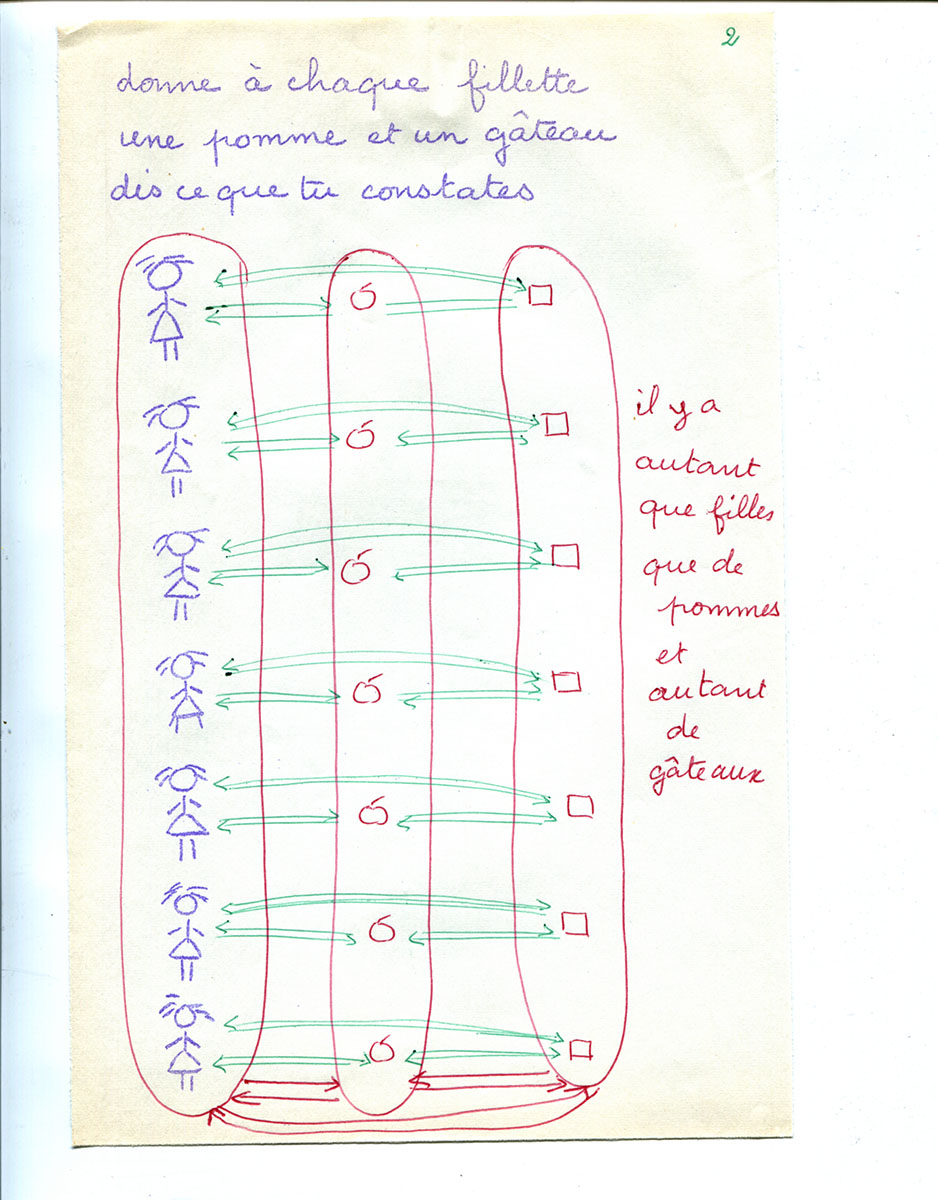 2
donne à chaque fillette
une pomme et un gâteau
dis ce que tu constates
il y a
autant
que filles
que de
pommes
et
autant
de
gâteaux